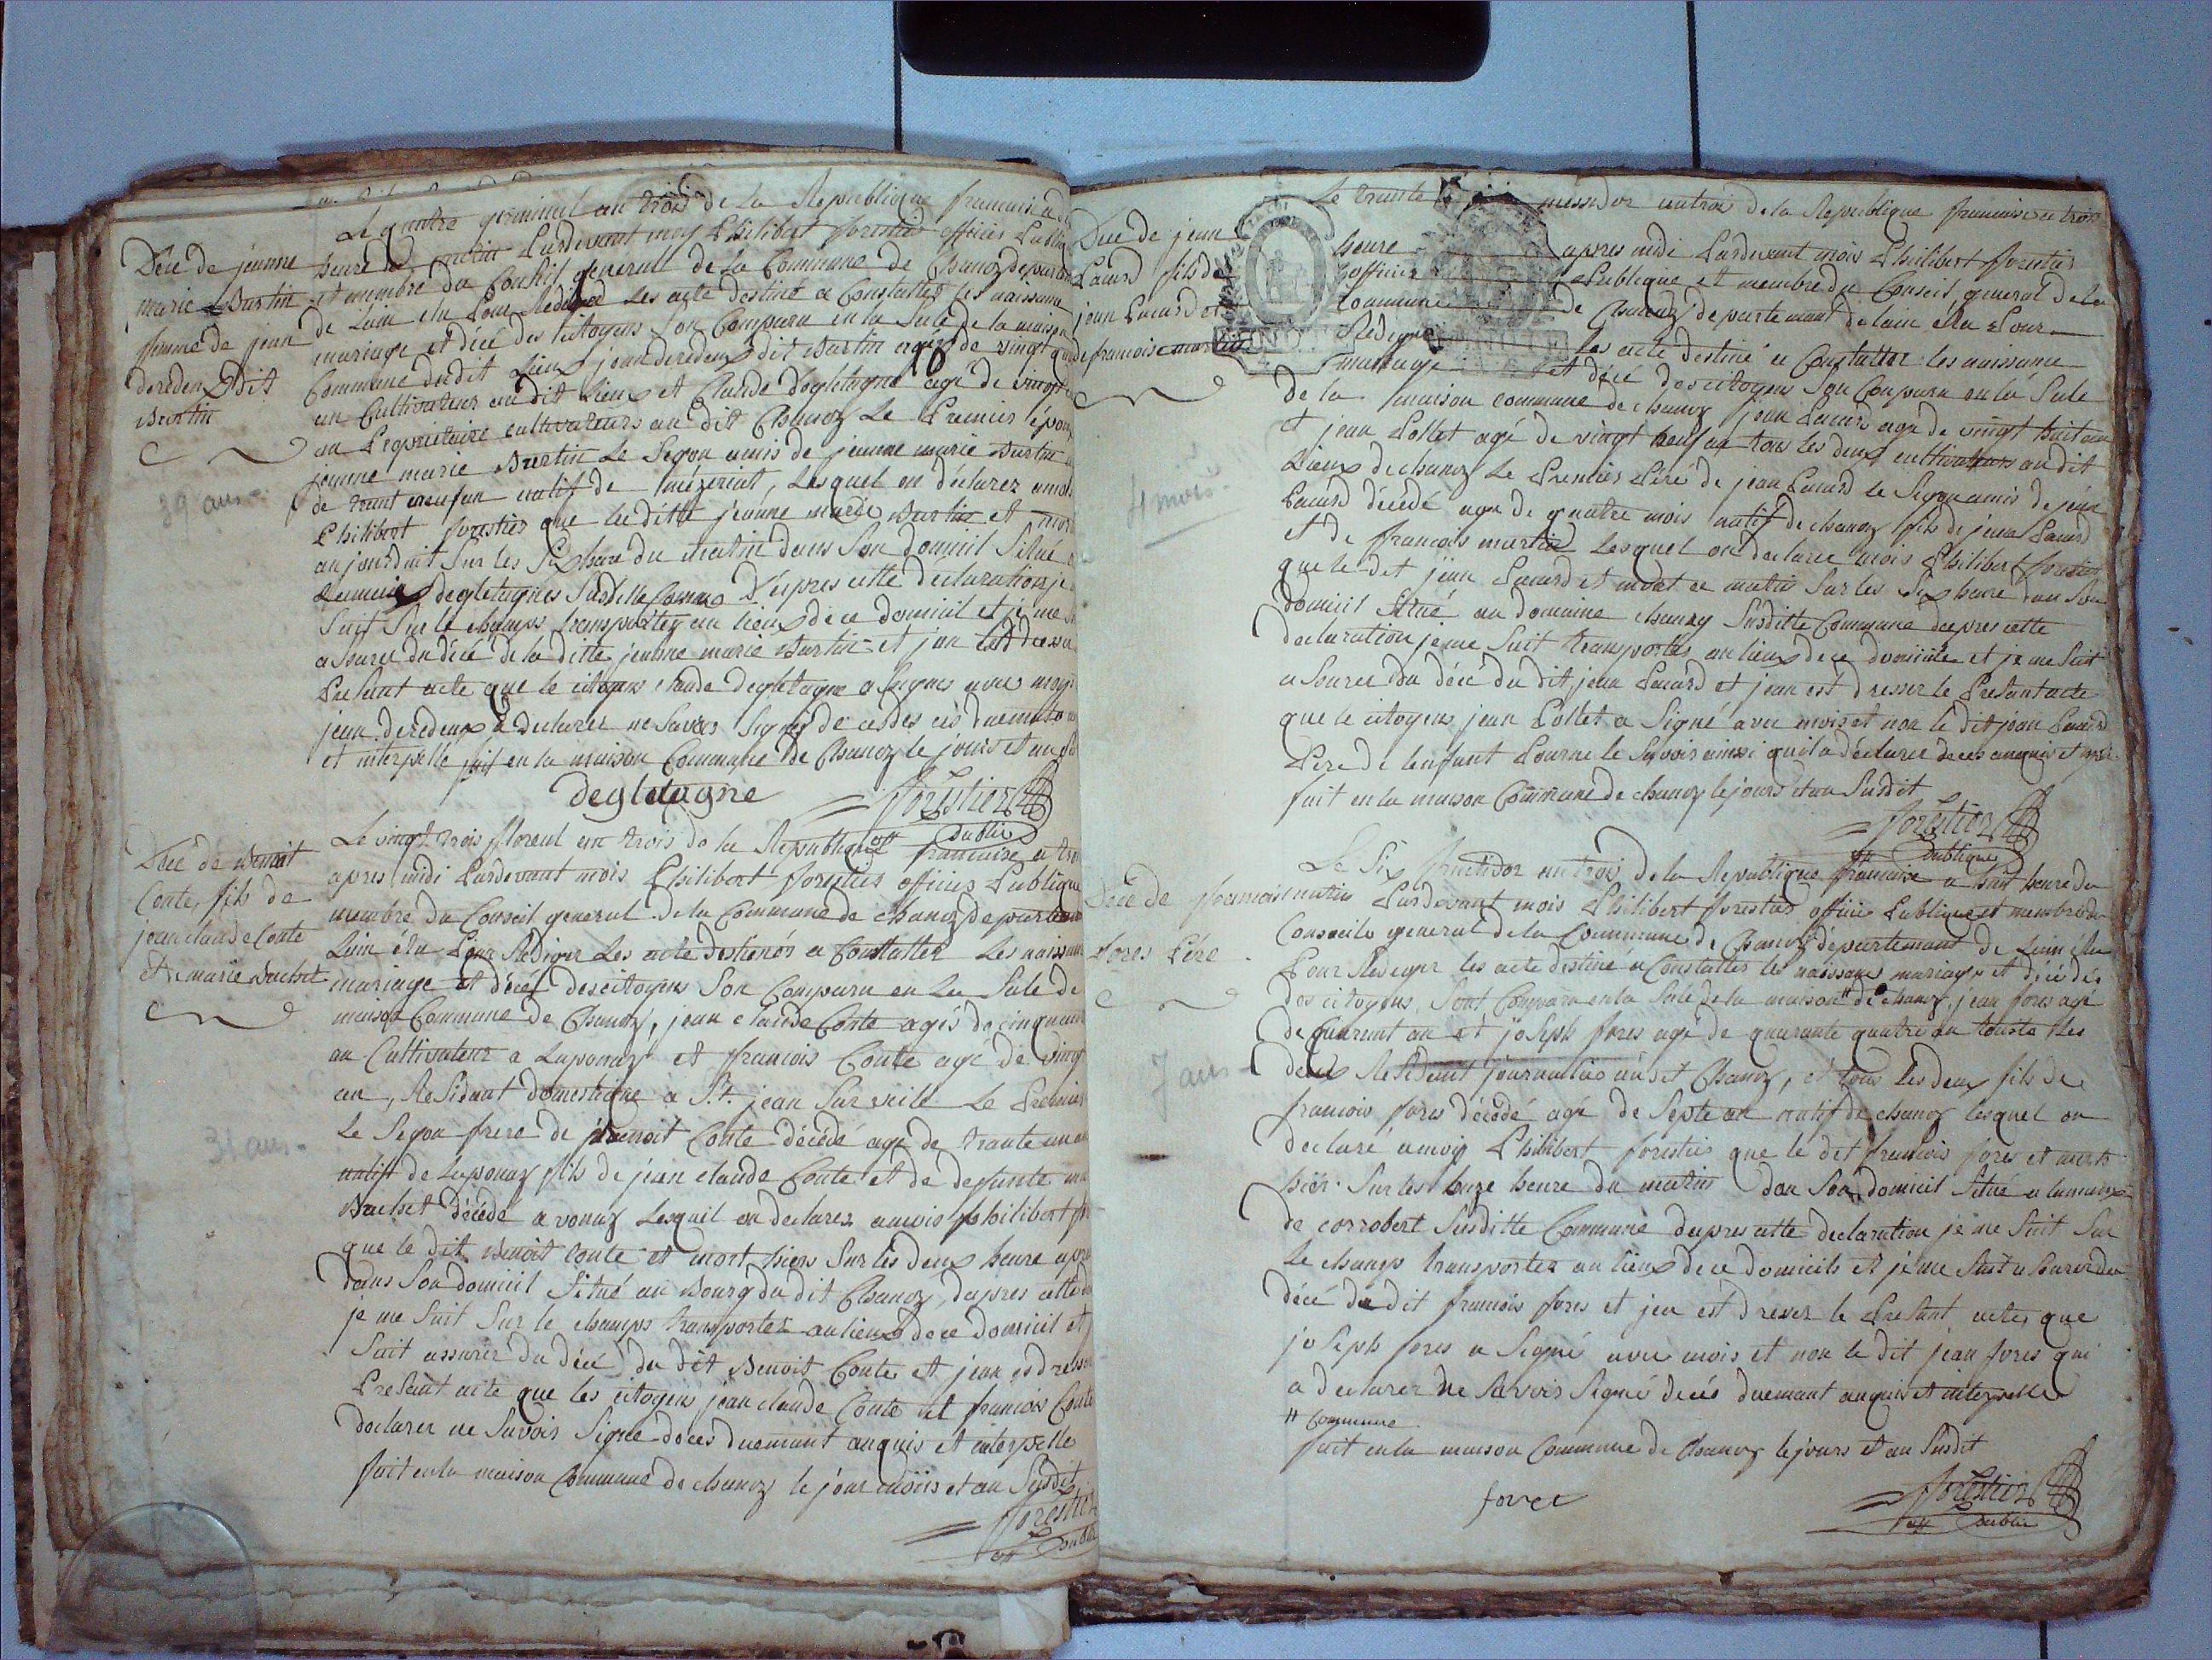 Le quatre germinal an trois de la Republique francaise a
heure du matin Pardevant moy Philibert forestier officier Public
et membre du Conseil general de la Commune de Chanoz departem
de Lain elu Pour Rediger Les acte destiné a Constatter les naissance
mariage et décé des Citoyens Son Comparu en la Sale de la maison
Commune dudit Lieux jean deredeux dit Burtin agé de vingt
an Cultivateur au dit Lieux et Claude degletagne agé de vingt
an Propriétaire cultivateurs au dit Chanoz Le Premier époux
jeanne marie Burtin Le Segon amis de jeanne marie Burtin
de trant neuf an natif de mézeriat, Lesquel on déclarez a moi
Philibert forestier que la ditte jeanne marie Burtin et mor
aujourduit Sur les Six heure du matin dans Son domicil Situé
degletagnes Susditte Commune D'épres cette déclaration je
Suit Sur le champs transporter au lieux de ce domicil et je me
assurer du décé de la ditte jeanne marie Burtin et jan est dresse
Presant acte que le citoyens claude degletagne a Signes avec moy
jean deredeux a declarer ne Savoir Signer de ce des cis duemant
et interpellé fait en la maison Commune de Chanoz le jour et an
degletagne
forestier
off Public
Décé de jeanne
marie Burtin
femme de jean
deredeux dit
Burtin
39 ans
Le vingt trois floreal an trois de la Republique francaise a tr
apres midi Pardevant mois Philibert forestier officier Publique
membre du Conseil general de la Commune de chanoz departemant
Lain élu Pour Rediger Les acte destinér a Constatter Les naissance
mariage et décéz des citoyens Son Comparu en La Sale de
maison Commune de Chanoz, jean claude Conte agés de cinquant
an Cultivateur a Laponaz et francois Conte agé de vingt
an, Residant domestique a St. jean Sur veile Le Premier
Le Segon frere de benoit Conte décédé agé de trante un an
natif de Laponaz fils de jean claude Conte et de defunte ma
Buchet décédé a vonaz Lesquil on declarez amois philibert
que le dit Benoit Conte et mort hiers Sur les deux heure apr
dans Son domicil Situé au Bourg du dit Chanoz, dapres cette
je me Suit Sur le champs transporter au lieux de ce domicil et
Suit assurér du décé du dit Benoit Conte et jean es dresser
Presant acte que les citoyens jean claude Conte et francois Conte
declarer ne Savoir Signé de ces duemant anquis et interpelle
fait en la maison Commune de chanoz le jour mois et an Susdit
forestier
off Public
Décé de Benoit
Conte, fils de
jean claude Conte
et de marie Buchet
31 ans
Le trante messidor an trois de la Republique francaise a trois
heure apres midi Pardevant mois Philibert forestier
officier Publique et membre du Conseil general de la
Commune de Chanoz departemant de lain élu Pour
Rediger les acte destiné a Constatter les naissance
mariage et décé des citoyens Son Comparu en la Sale
de la maison commune de chanoz jean Pacard agé de vingt huit an
et jean Pollet agé de vingt neuf an tous les deux cultivateurs au dit
Lieux de chanoz Le Premier Péré de jean Pacard le Segon amis de jean
Pacard décédé agé de quatre mois natif de chanoz fils de jean Pacard
et de francois martin Lesquel on declarer mois Philibert forestier
que le det jean Pacard et mort ce matin Sur les Six heure dan Son
domicil Situé au domaine chanoz Susditte Commune dapres cette
declaration je me Suit transportés au lieux de ce domicile et je me Suit
assourer du décé du dit jean Pacard et jean est dresser le Presant acte
que le citoyens jean Pollet a Signé avec mois et non le dit jean Pacard
Pére de lenfant Pour ne le Savoir ainsi quil a déclarer de ces anquis et
fait en la maison Commune de chanoz le jours et an Susdit
forestier
off Publique
Décé de jean
Pacard fils de
jean Pacard et
de francoise martin
4 mois
Le Six fructidor an trois de la Republique francaise a huit heure du
matin Pardevant mois Philibert forestier officier Publique et membre du
Conseils general de la Commune de Chanoz departemant de Lain élu
Pour Rediger les acte destiné a Constatter les naissance mariage et décé
des citoyens, Sont Comparu en la Sale de la maison # de chanoz, jean fores agé
de quarant an et joseph fores agé de quarante quatre an touste les
deux Residant journalier au det Chanoz, et tous les deux fils de
francois fores décédé agé de Septe an natif de chanoz lesquel on
declaré a moy Philibert forestier que le det francois fores et mort
hier Sur les onze heure du matin dan Son domicil Situé a
de corrobert Susditte Commune dapres cette declaration je me Suit Sur
Le champs transporter au lieux de ce domicils et je me Suit assurer du
décé du dit francois fores et jen est dresser le Presant acte, que
joseph fores a Signé avec mois et non le dit jean fores qui
a declarer ne Savoir Signé de ces duemant anquis et interpelle
# Commune
fait en la maison Commune de Chanoz le jours et an Susdit
forestier
off Public
Décé de francois
fores Pére
7 ans